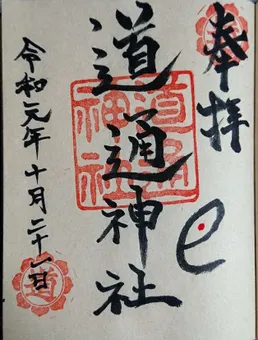 奉拝
道通神社
令和元年十月二十一日
道通神社
道